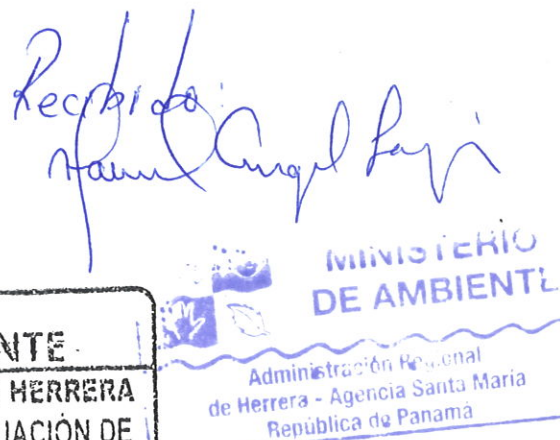 Recibido:
Angel
MINISTERIO
DE AMBIENTE
Administración Regional
de Herrera - Agencia Santa María
República de Panamá
NTE
HERRERA
UACIÓN DE